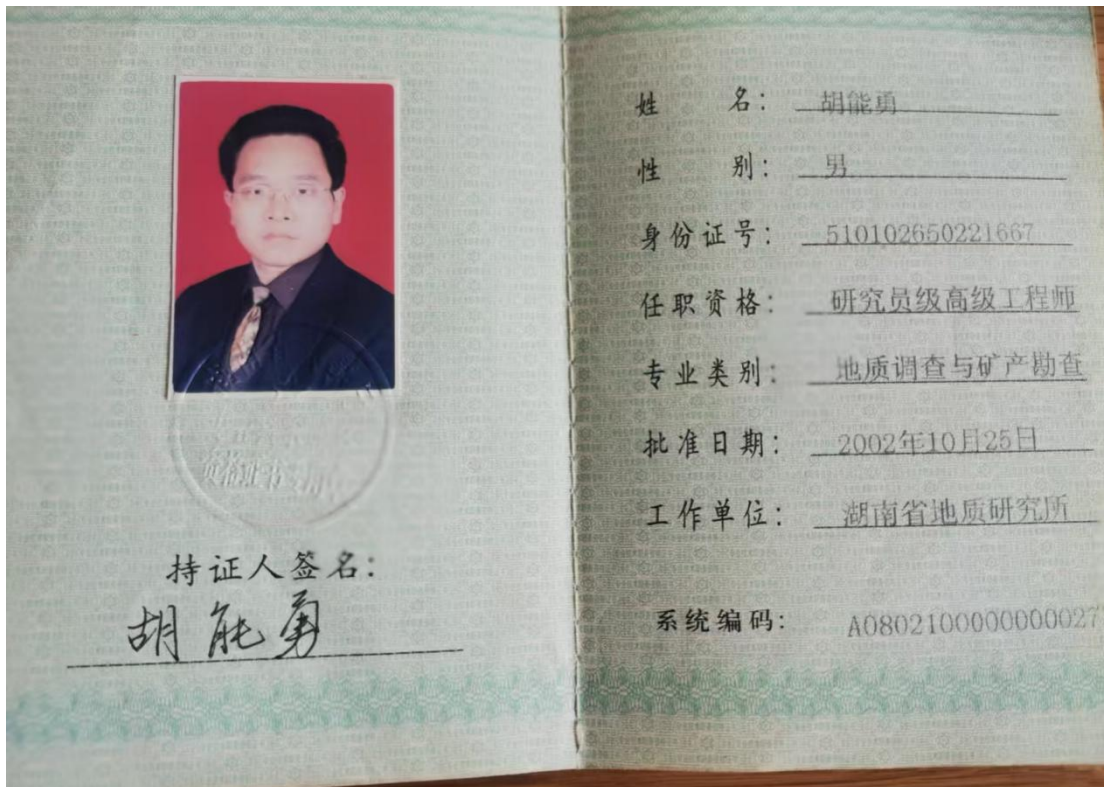 持证人签名：
胡能勇
姓 名： 胡能勇
性 别： 男
身份证号： 510102650221667
任职资格： 研究员级高级工程师
专业类别： 地质调查与矿产勘查
批准日期： 2002年10月25日
工作单位： 湖南省地质研究所
系统编码： A08021000000000027
资格证书专用